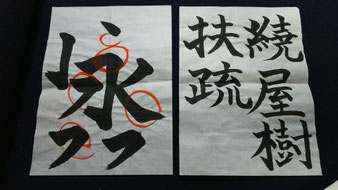 繞屋樹
扶疏
永